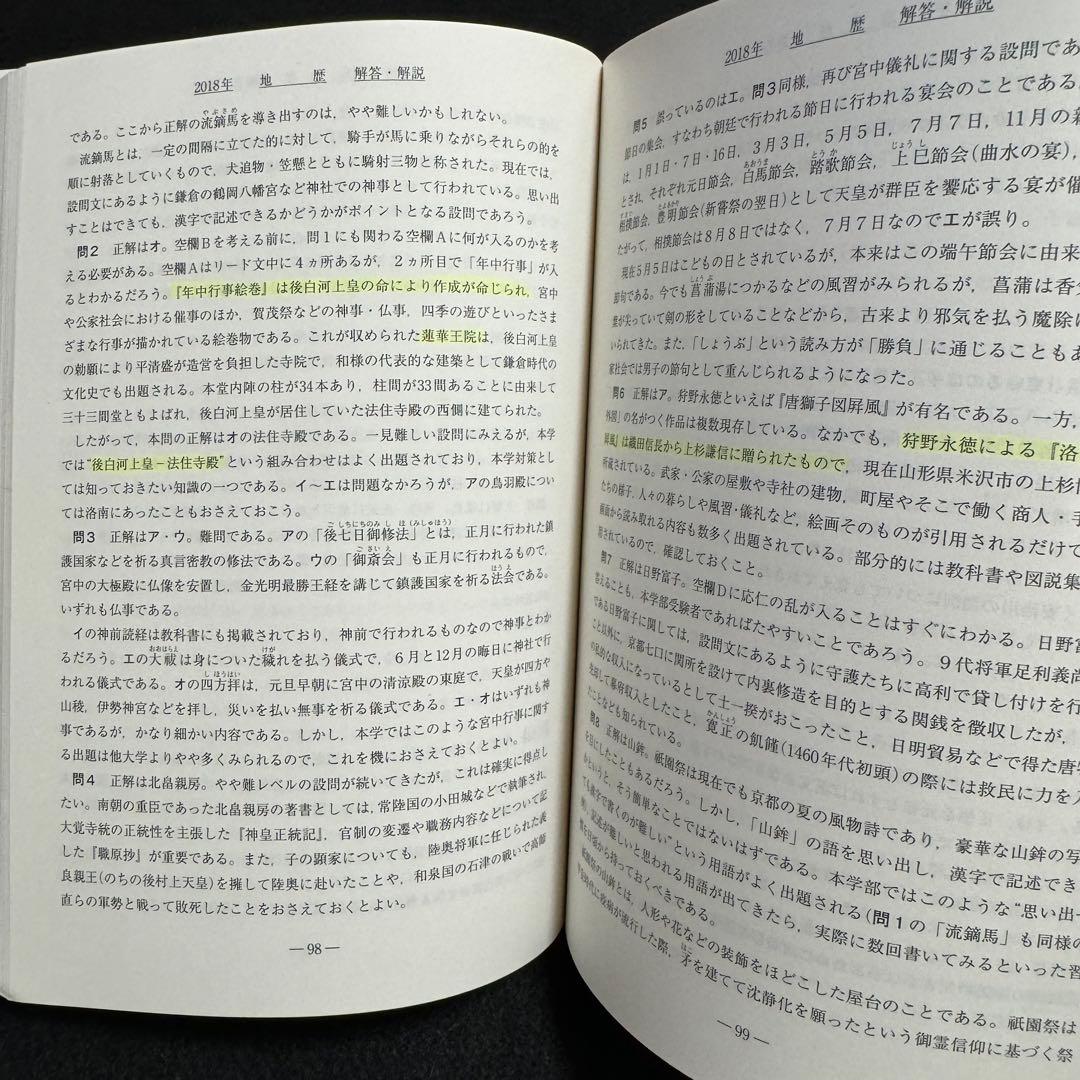 2018年 地 歴 解答・解説
である。ここから正解の流鏑馬を導き出すのは，やや難しいかもしれない。
やぶさめ
流鏑馬とは，一定の間隔に立てた的に対して，騎手が馬に乗りながらそれらの的を
順に射落としていくもので，犬追物・笠懸とともに騎射三物と称された。現在では，
設問文にあるように鎌倉の鶴岡八幡宮など神社での神事として行われている。思い出
すことはできても，漢字で記述できるかどうかがポイントとなる設問であろう。
問2 正解はオ。空欄Bを考える前に，問1にも関わる空欄Aに何が入るのかを考
える必要がある。空欄Aはリード文中に4ヵ所あるが，2ヵ所目で「年中行事」が入
るとわかるだろう。『年中行事絵巻』は後白河上皇の命により作成が命じられ，宮中
や公家社会における催事のほか，賀茂祭などの神事・仏事，四季の遊びといったさま
ざまな行事が描かれている絵巻物である。これが収められた蓮華王院は，後白河上皇
の勅願により平清盛が造営を負担した寺院で，和様の代表的な建築として鎌倉時代の
文化史でも出題される。本堂内陣の柱が34本あり，柱間が33間あることに由来して
三十三間堂ともよばれ，後白河上皇が居住していた法住寺殿の西側に建てられた。
したがって，本問の正解はオの法住寺殿である。一見難しい設問にみえるが，本学
では“後白河上皇－法住寺殿”という組み合わせはよく出題されており，本学対策とし
ては知っておきたい知識の一つである。イ～エは問題なかろうが，アの鳥羽殿につい
ては洛南にあったこともおさえておこう。
問3 正解はア・ウ。難問である。アの「後七日御修法」とは，正月に行われた鎮
ごしちにちのみしほ(みしゅほう)
護国家などを祈る真言密教の修法である。ウの「御斎会」も正月に行われるもので，
ごさいえ
宮中の大極殿に仏像を安置し，金光明最勝王経を講じて鎮護国家を祈る法会である。
ほうえ
いずれも仏事である。
イの神前読経は教科書にも掲載されており，神前で行われるものなので神事とわか
るだろう。エの大祓は身についた穢れを払う儀式で，6月と12月の晦日に神社で行
おおはらえ けが
われる儀式である。オの四方拝は，元旦早朝に宮中の清涼殿の東庭で，天皇が四方や
しほうはい
山稜，伊勢神宮などを拝し，災いを払い無事を祈る儀式である。エ・オはいずれも神
事であるが，かなり細かい内容である。しかし，本学ではこのような宮中行事に関す
る出題は他大学よりやや多くみられるので，これを機におさえておくとよい。
問4 正解は北畠親房。やや難レベルの設問が続いてきたが，これは確実に得点し
たい。南朝の重臣であった北畠親房の著書としては，常陸国の小田城などで執筆され，
大覚寺統の正統性を主張した『神皇正統記』，官制の変遷や職務内容などについて記
した『職原抄』が重要である。また，子の顕家についても，陸奥将軍に任じられた義
良親王(のちの後村上天皇)を擁して陸奥に赴いたことや，和泉国の石津の戦いで高師
直らの軍勢と戦って敗死したことをおさえておくとよい。
―98―
2018年 地 歴 解答・解説
問5 誤っているのはエ。問3同様，再び宮中儀礼に関する設問であ
節日の集会，すなわち朝廷で行われる節日に行われる宴会のことである
は，1月1日・7日・16日，3月3日，5月5日，7月7日，11月の新
とされ，それぞれ元日節会，白馬節会，踏歌節会，上巳節会(曲水の宴)，
あおうま とうか じょうし
相撲節会，豊明節会(新嘗祭の翌日)として天皇が群臣を饗応する宴が催
すまい とよあかり
たがって，相撲節会は8月8日ではなく，7月7日なのでエが誤り。
現在5月5日はこどもの日とされているが，本来はこの端午節会に由来
節句である。今でも菖蒲湯につかるなどの風習がみられるが，菖蒲は香
しょうぶ
葉が尖っていて剣の形をしていることなどから，古来より邪気を払う魔除
いられてきた。また，「しょうぶ」という読み方が「勝負」に通じることもあ
家社会では男子の節句として重んじられるようになった。
問6 正解はア。狩野永徳といえば『唐獅子図屏風』が有名である。一方，
外図』の名がつく作品は複数現存している。なかでも，狩野永徳による『洛
屏風』は織田信長から上杉謙信に贈られたもので，現在山形県米沢市の上杉
所蔵されている。武家・公家の屋敷や寺社の建物，町屋やそこで働く商人・手
たちの様子，人々の暮らしや風習・儀礼など，絵画そのものが引用されるだけで
画面から読み取れる内容も数多く出題されている。部分的には教科書や図説集
用されているので，確認しておくこと。
問7 正解は日野富子。空欄Dに応仁の乱が入ることはすぐにわかる。日野富
答えることも，本学部受験者であればたやすいことであろう。9代将軍足利義尚
である日野富子に関しては，設問文にあるように守護たちに高利で貸し付けを行
こと以外に，京都七口に関所を設けて内裏修造を目的とする関銭を徴収したが，
の私的な収入になっているとして土一揆がおこったこと，日明貿易などで得た唐物
売却して幕府収入としたこと，寛正の飢饉(1460年代初頭)の際には救民に力を入
かんしょう
たことなども知られている。
問8 正解は山鉾。祇園祭は現在でも京都の夏の風物詩であり，豪華な山鉾の写
を目にしたこともあるだろう。しかし，「山鉾」の語を思い出し，漢字で記述でき
かというと，そう簡単なことではないはずである。本学部ではこのような“思い出せ
ても漢字で書くのが難しい”という用語がよく出題される(問1の「流鏑馬」も同様の
例)。記述が難しいと思われる用語が出てきたら，実際に数回書いてみるといった習
慣を日頃から持っておくべきである。
祇園祭の山鉾とは，人形や花などの装飾をほどこした屋台のことである。祇園祭は
平安時代に疫病が流行した際，矛を建てて沈静化を願ったという御霊信仰に基づく祭
ほこ
―99―